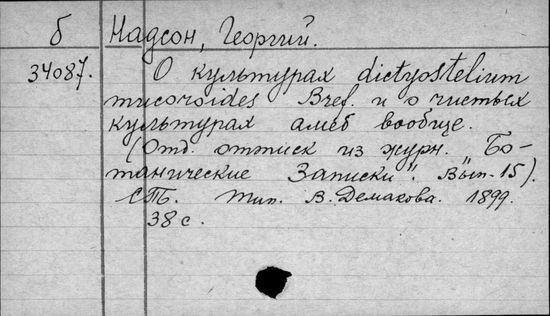 б Надсон, Георгий.
34087. О культурах dictyostelium
mucoroides Bref. и о чистых
культурах амеб вообще.
(Отд. оттиск из журн. "Бо-
танические Записки". Вып. 15).
СПБ. Тип. В. Демакова. 1899.
38 с.